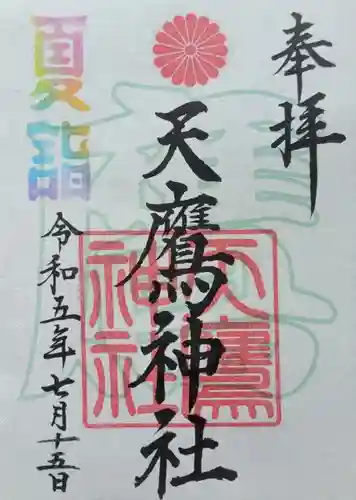 奉拝
天鷹神社
天鷹神社
夏詣
令和五年七月十五日